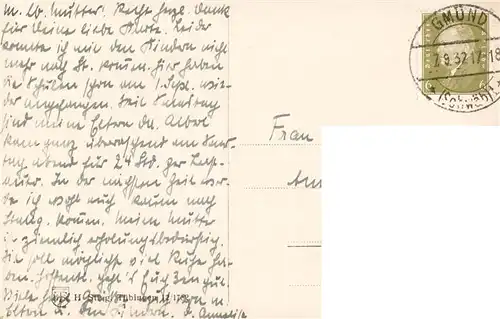 M. lb. Mutter. Recht herzl. Dank
für Deine liebe Karte. Leider
konnte ich mit den Kindern nicht
mehr nach St. kommen. Hier haben
die Schulen schon am 1. Sept. wie-
der angefangen. Seit Samstag
sind meine Eltern da. Albert
kam ganz überraschend am Sams-
tag abend für 24 Std. zur Last-
auto. In der nächsten Zeit wer-
de ich wohl auch kaum nach
Stuttg. kommen. Meine Mutter
ist ziemlich erholungsbedürftig.
Sie soll möglichst viel Ruhe ha-
ben. Hoffentl. geht's Euch gut.
Viele
Eltern u. den Kindern. D. Annelise
Frau
GMÜND
7.9.32.17-18
(SCHWÄB)
DEUTSCHES REICH
6